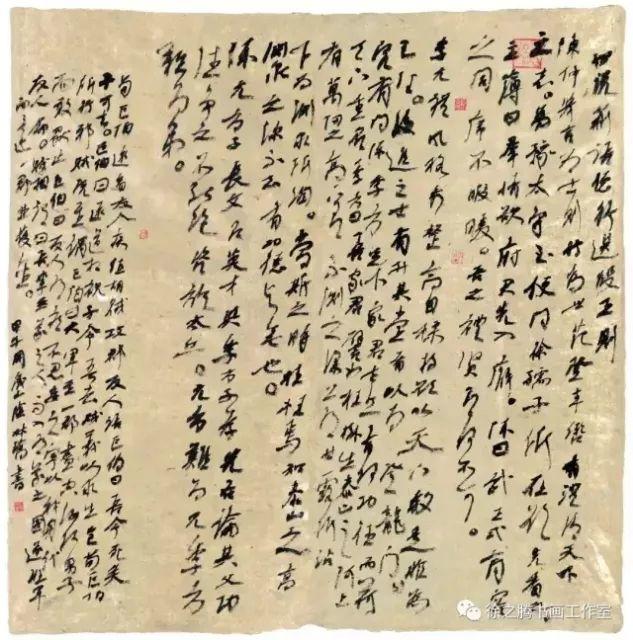 世説新語德行選段五則
陳仲舉言為士則行為世範登車攬轡有澄清天下
之志。為豫太守至便問徐孺子所在欲先看
主簿曰羣情欲府君先入廨。陳曰武王式商容
之閭席不暇暖。吾之禮賢有何不可。
李元禮風格秀整高自標持欲以天下名教是非為
己任。後進之士有升其堂者以為登龍門。
客有問陳季方足下家君太丘有何功德而荷
天下重名季方曰吾家君譬如桂樹生泰山之阿上
有萬仞之高下有不測之深上為甘露所沾
下為淵泉所潤。當斯之時桂樹焉知泰山之高
淵泉之深不知有功德與無也。
陳元方子長文有英才與季方子孝先各論其父功
德爭之不能決咨於太丘。元方難為兄季方
難為弟。
荀巨伯遠看友人疾值胡賊攻郡友人語巨伯曰吾今死矣
子可去。巨伯曰遠來相視子令吾去敗義以求生豈荀巨伯
所行邪賊既至謂巨伯曰大軍至一郡盡空汝何男子
而敢獨止巨伯曰友人有疾不忍委之寧以我身代
友人命。賊相謂曰我輩無義之人而入有義之國遂班軍
而還一郡並獲全。甲午林鵬書
徐之腾书画工作室